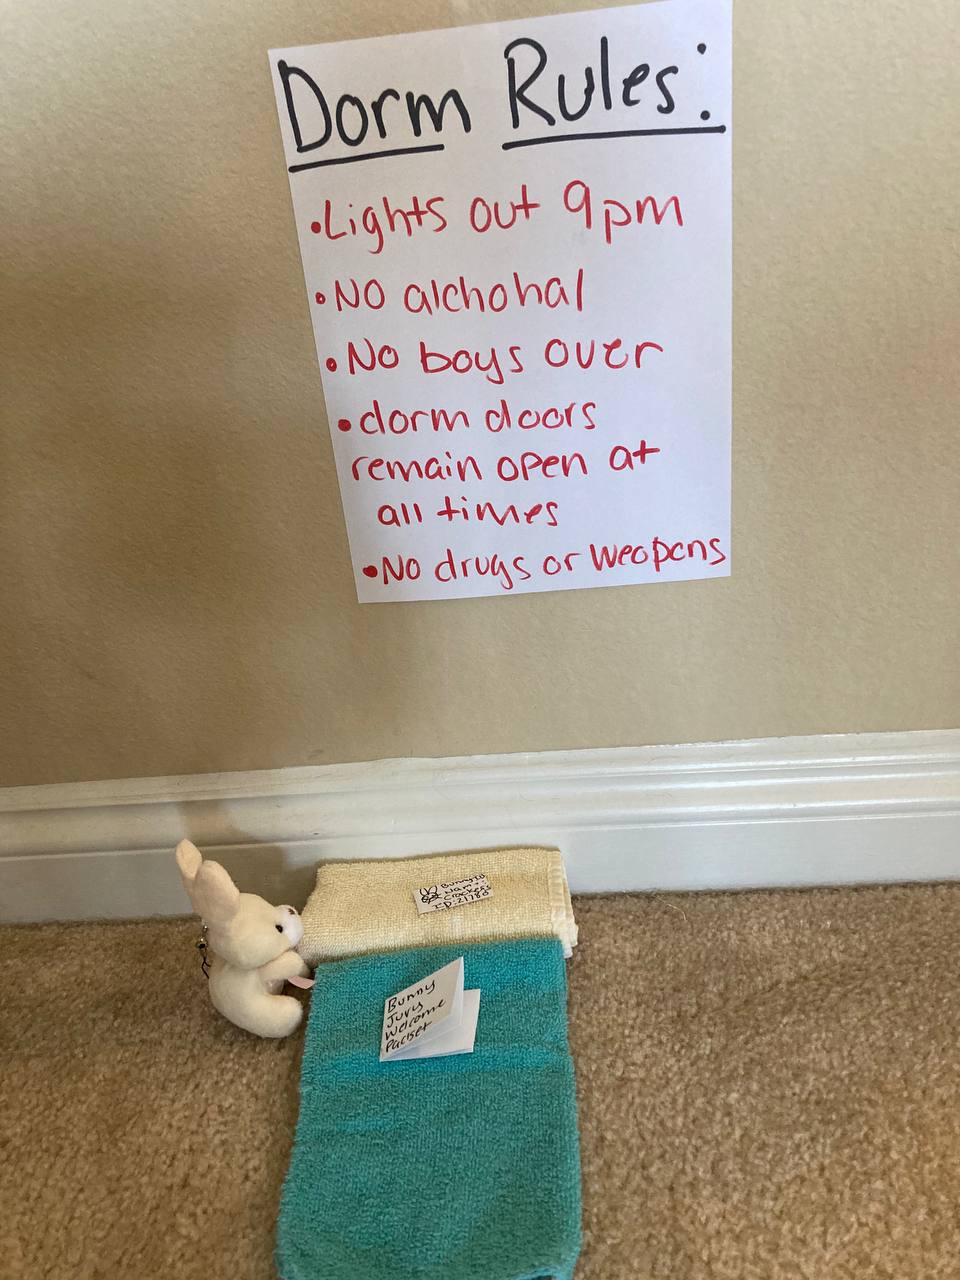 Dorm Rules:
•Lights out 9pm
•No alchohal
•No boys over
•dorm doors
remain open at
all times
•No drugs or weopens
Bunny ID
Nam:
Crackers
ID:21780
Bunny
Jury
Welcome